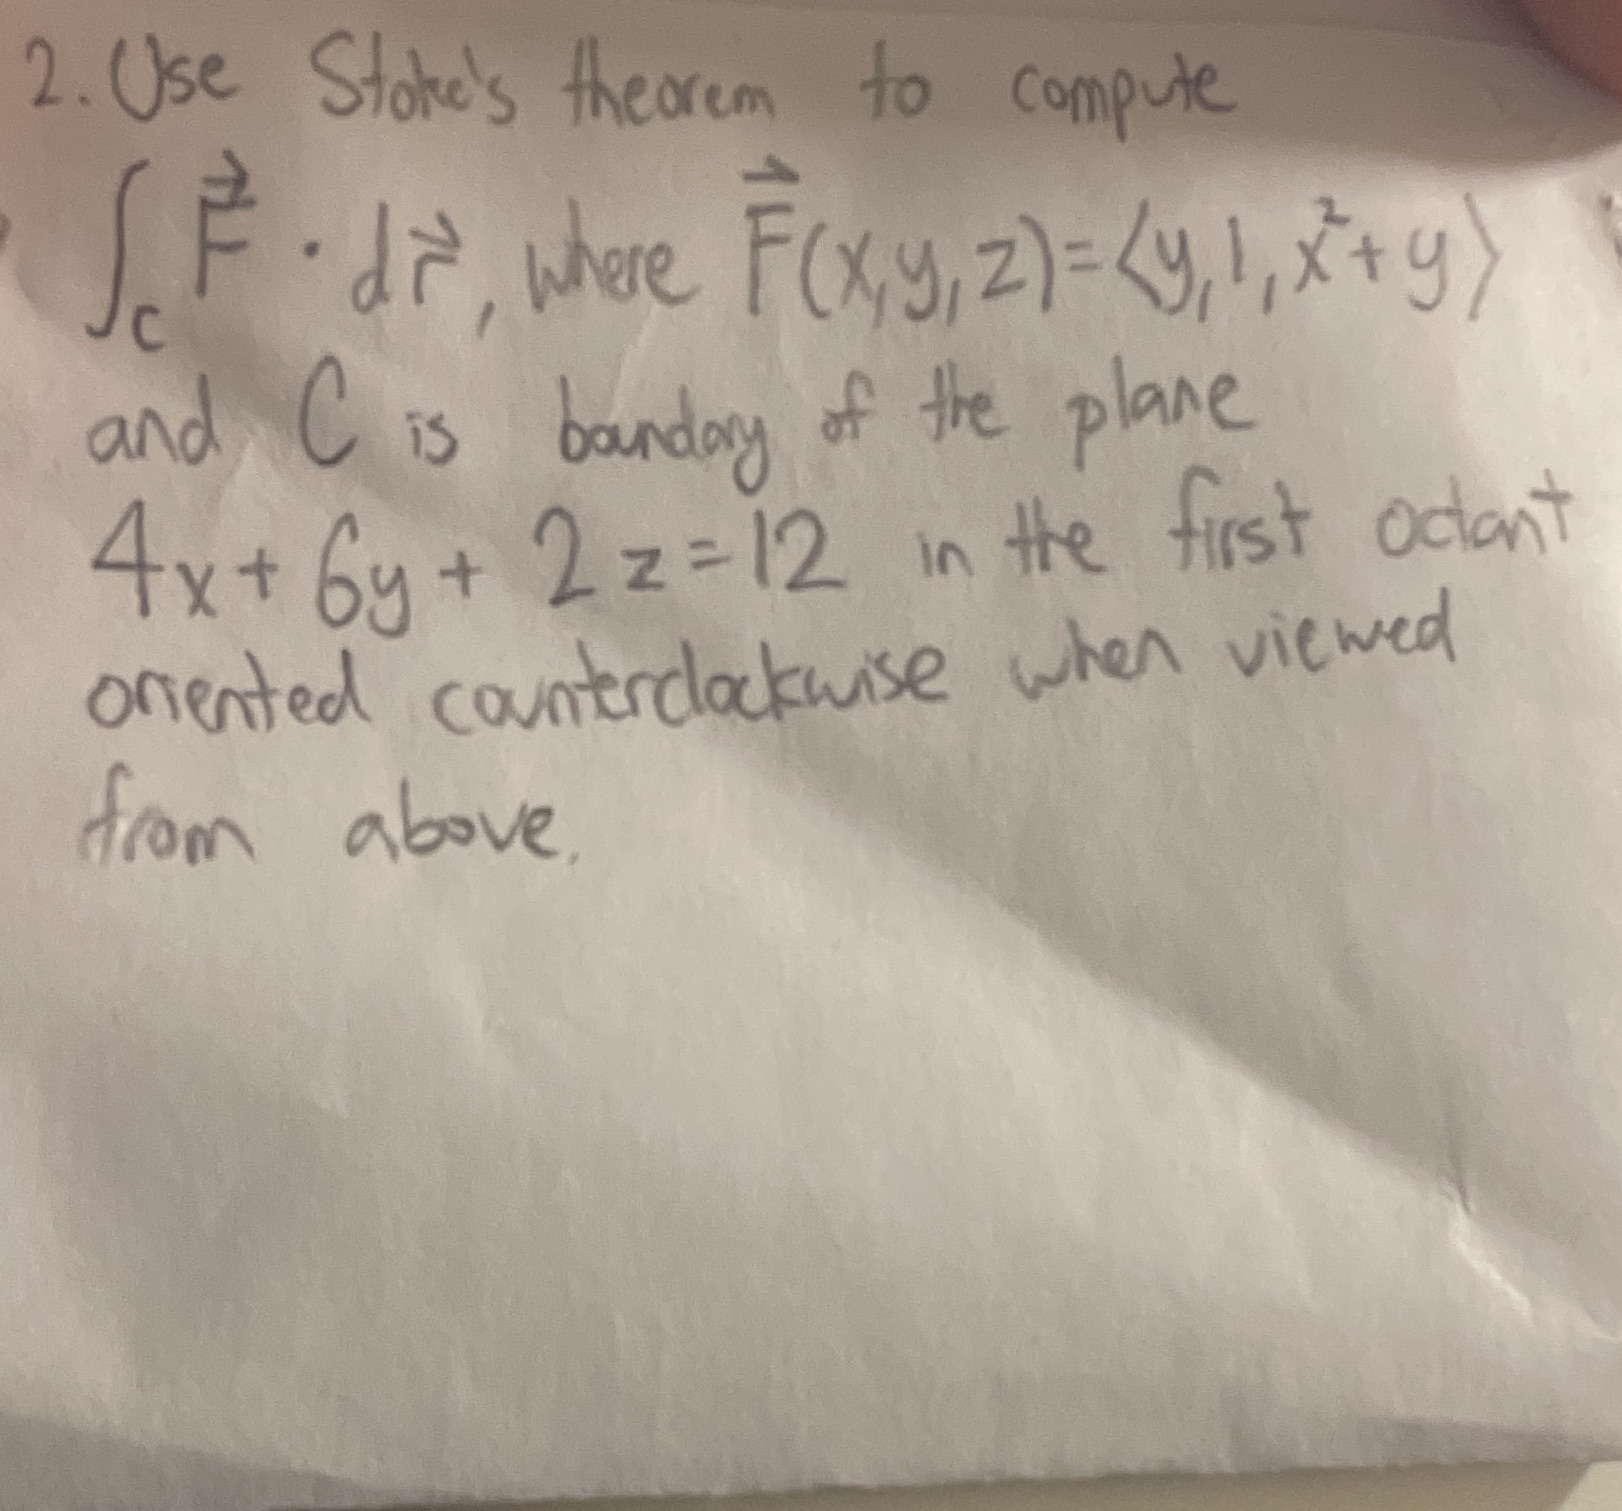 2. Use Stoke's theorem to compute
∫_C F⃗ · dr⃗, where F⃗(x,y,z)=⟨y,1,x²+y⟩
and C is boundary of the plane
4x+6y+2z=12 in the first octant
oriented counterclockwise when viewed
from above.